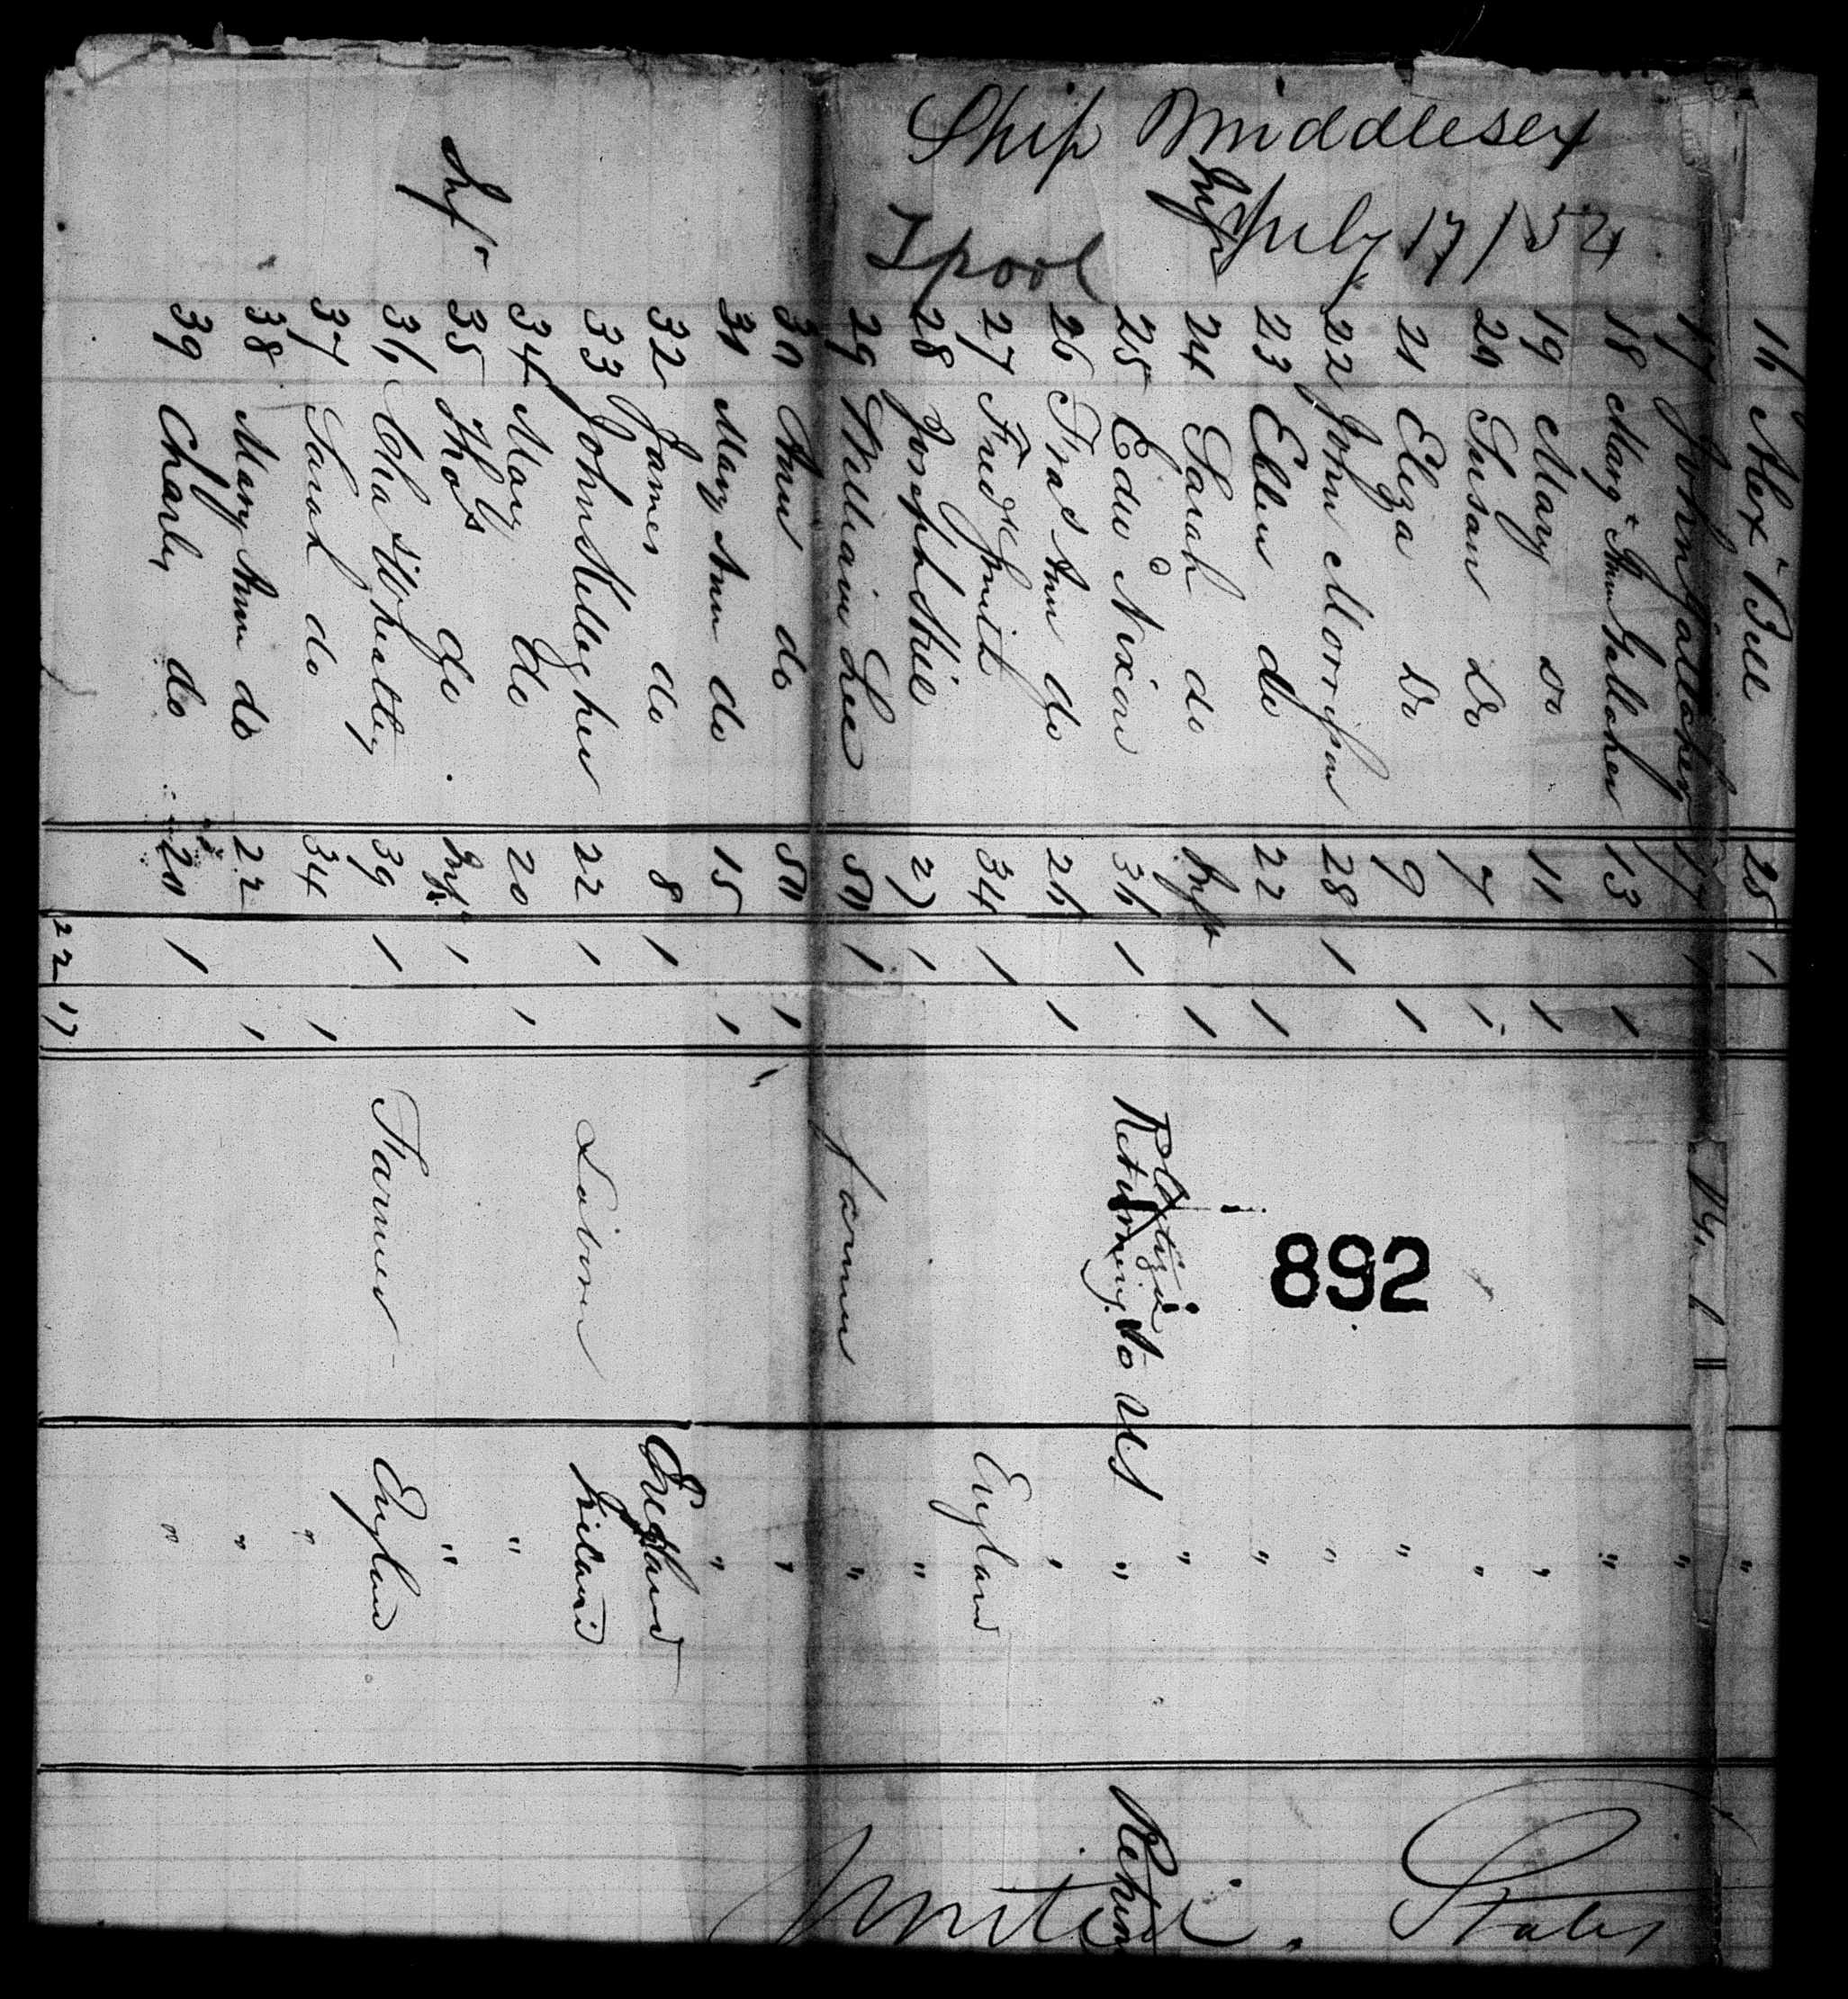 Ship Middlesex
July 17/54
Lpool
16 Alexr Bell 25 1 "
17 John Gallaher 17 "
18 Margt Ann Gallaher 13 1 "
19 Mary Do 11 1 "
20 Susan Do 7 1 "
21 Eliza Do 9 1 "
22 John Morrison 28 1 "
23 Ellen do 22 1 "
Inft 24 Sarah do Inft 1 "
25 Edwd Nixon 36 1 Returning to US "
26 Fras Ann do 26 1 "
27 Fredk Smith 34 1 England
28 Joseph 27 1 "
29 William Lee 50 1 farmer "
30 Ann do 50 1 "
31 Mary Ann do 15 1 "
32 James do 8 1 England
33 John 22 1 Laborer Ireland
34 Mary do 20 1 "
Inft 35 Thos do Inft 1 "
36 Chas Wheatley 39 1 Farmer England
37 Sarah do 34 1 "
38 Mary Ann do 22 1 "
39 Charles do 20 1 "
22 17
892
United States